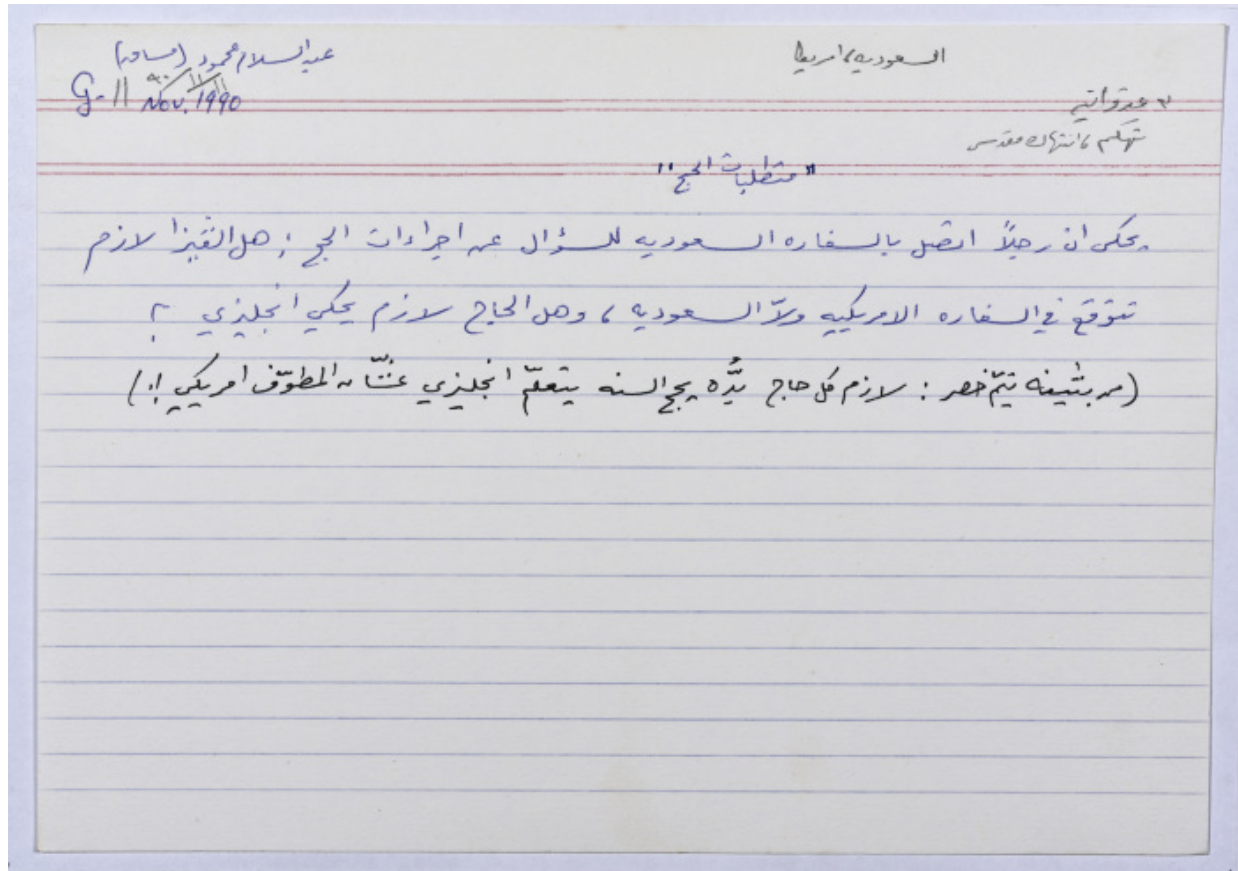 السعودية، امريكا
عبد السلام محمود (مساعد)
٩٠/١١/١١
G-11 Nov. 1990
عدوانية
تهكم، انتهاك مقدس
"متطلبات الحج"
يحكى ان رجلاً اتصل بالسفاره السعوديه للسؤال عن اجراءات الحج: هل الڤيزا لازم
تتوقع في السفاره الامريكيه ولاّ السعوديه، وهل الحاج لازم يحكي انجليزي؟
(من بثينه تيّم خضر: لازم كل حاج بدُّه يحج السنه يتعلّم انجليزي عشان المطوّف امريكي!!)